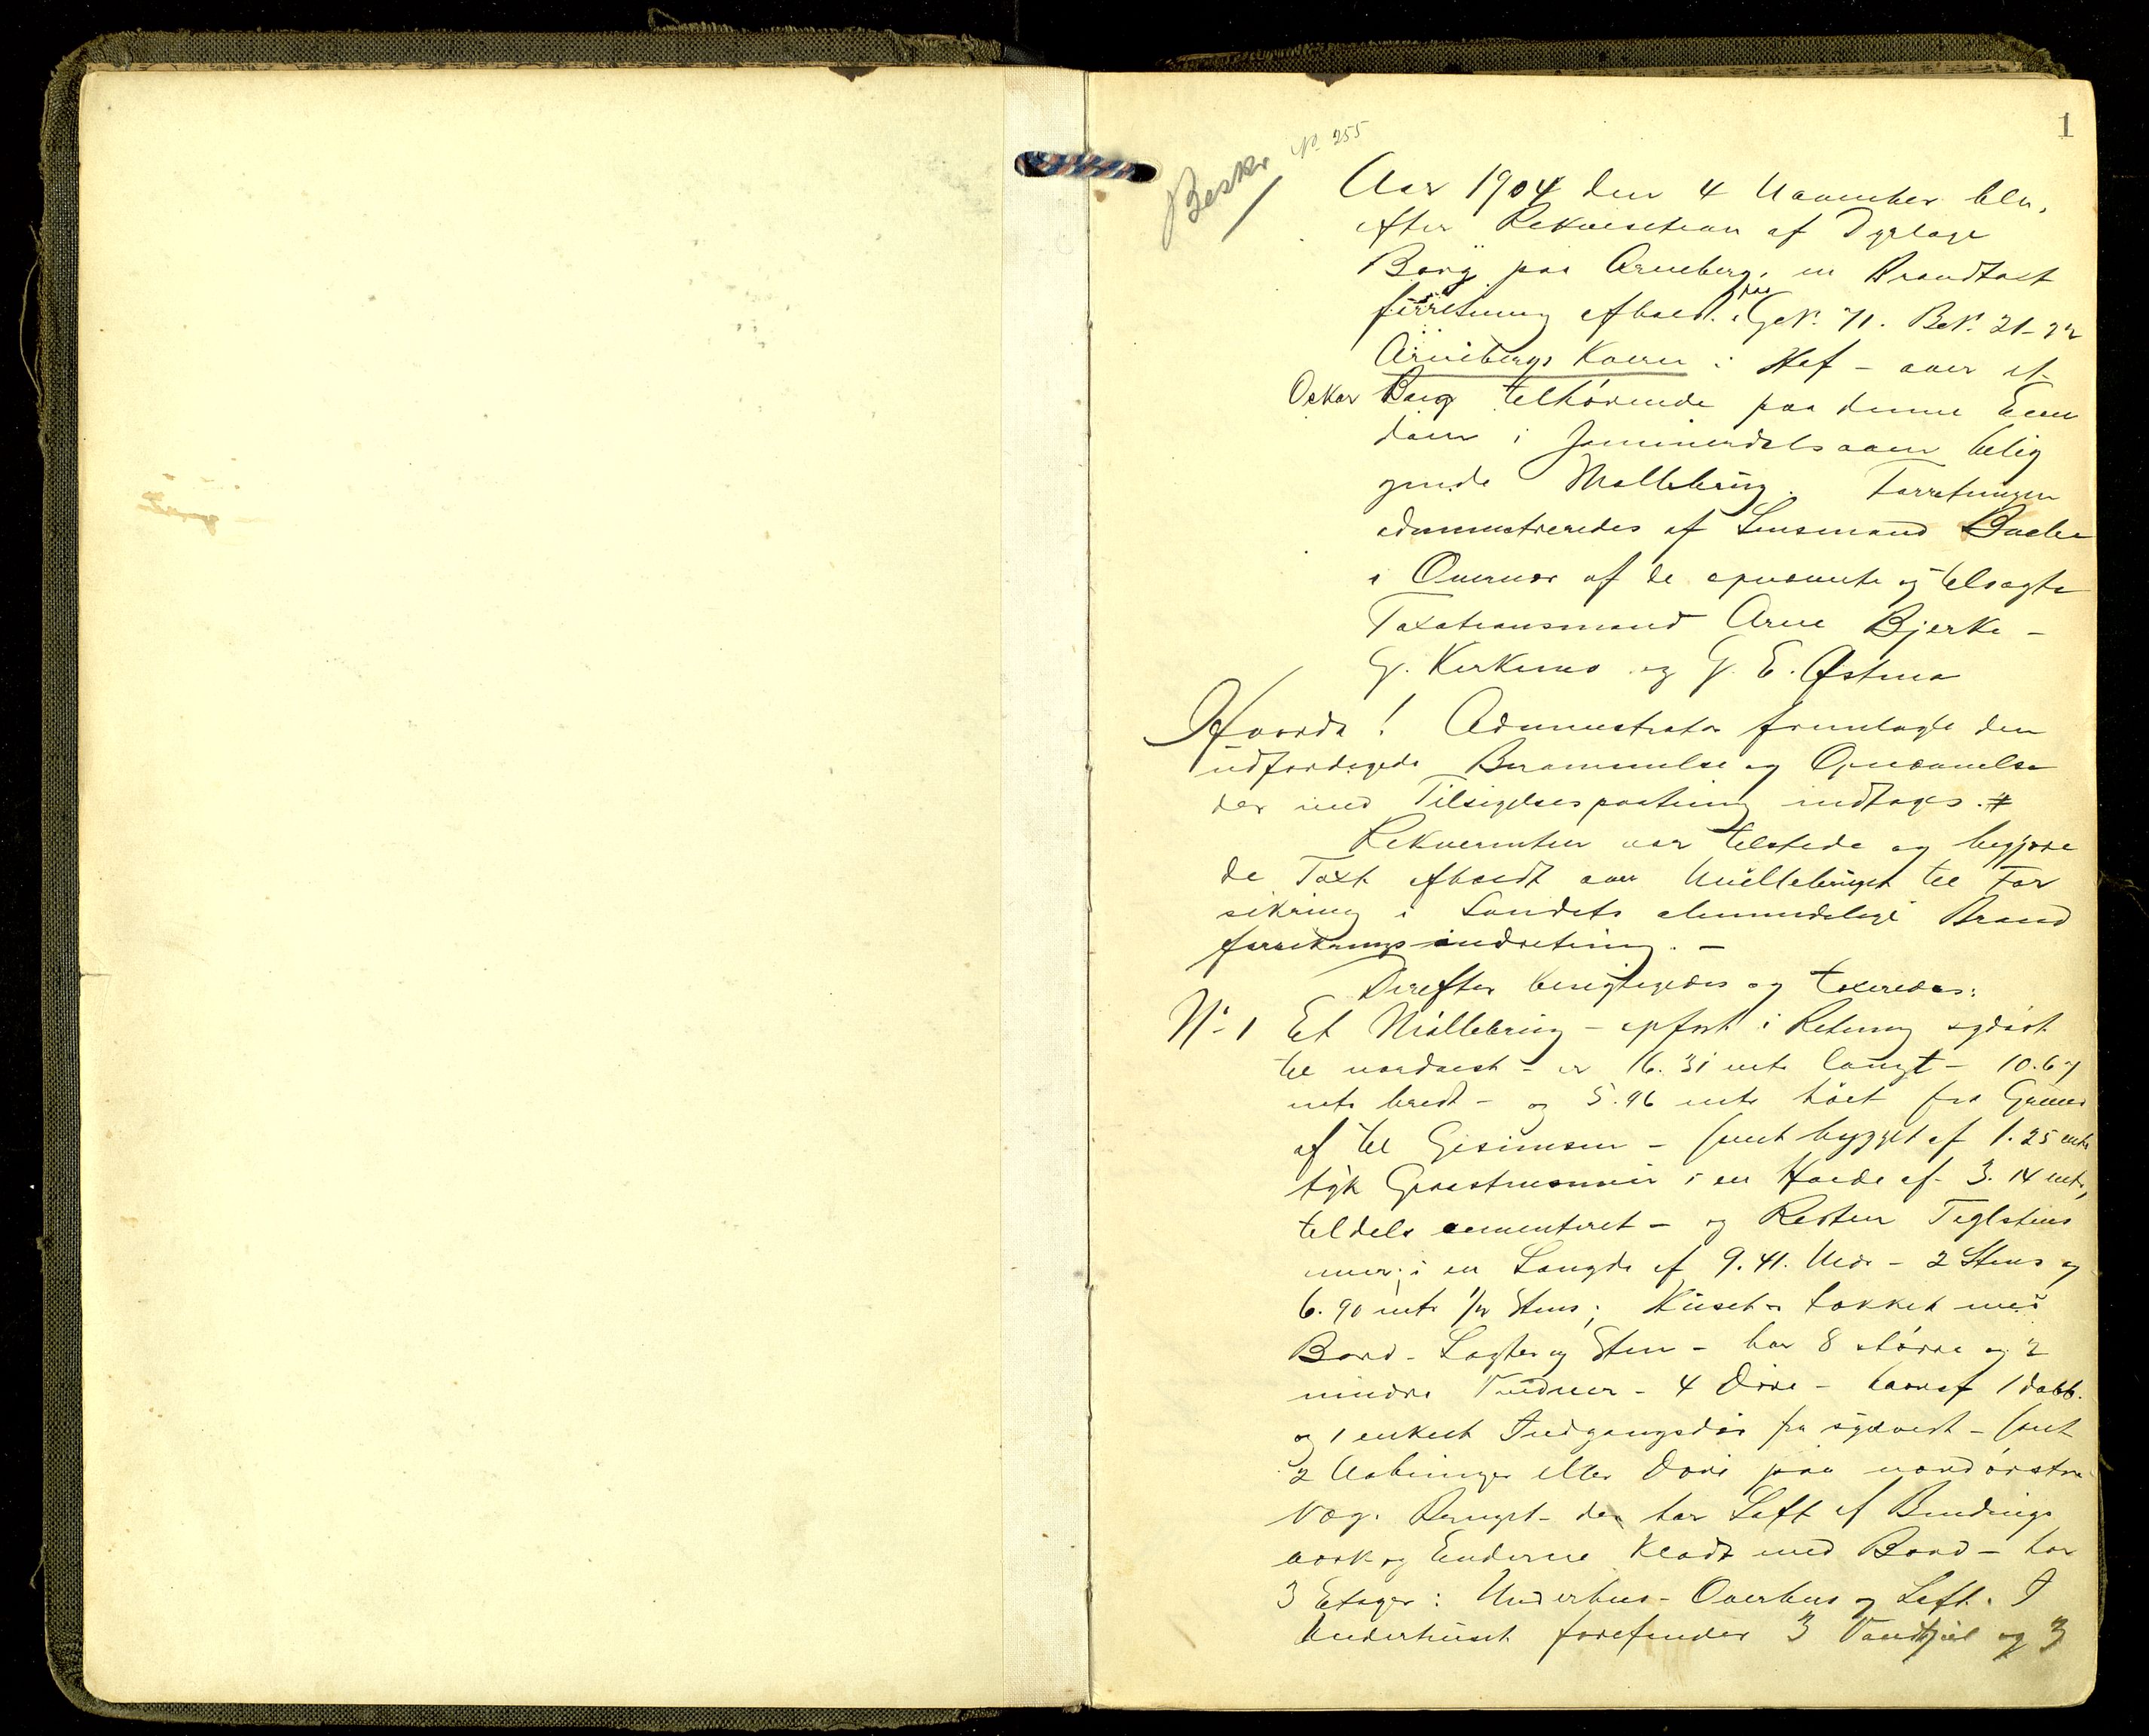 1
Beskr No. 255
Aar 1904 den 4 November blev
efter Rekvisition af Dyrlæge
Borg paa Arneberg, en Brandtaxt
forretning afholdt paa Gn. 71. Bn. 21-22
Arnebergs Kværn i Hof - over et
Oskar Borg tilhørende paa denne Eien
dom i Jammerdalsaaen belig
gende Møllebrug. Forretningen
administreredes af Lensmand
i Overvær af de opnævnte og tilsagte
Taxationsmænd Arne Bjerke -
G. Kirkemo og G. E. Østmo
Hvorda! Administrator fremlagte den
udfærdigede Berammelse og Opnævnelse
der med Tilsigelsespaategning indtages. #
Rekvirenten var tilstede og begjære
de Taxt afholdt over Møllebruget til For
sikring i Landets almindelige Brand
forsikringsindretning. -
Derefter besigtigedes og taxeredes:
No 1 Et Møllebrug - opført i Retning sydøst
til nordvest - er 16.31 mtr langt - 10.67
mtr bredt - og 5.96 mtr høit fra Grund
af til Gesimsen - samt bygget af 1.25 mtr
tyk Graastensmur i en Høide af 3.14 mtr,
tildels cementeret - og Resten Teglstens
mur; i en Længde af 9.41. Mtr - 2 Stens og
6.90 mtr 1/2 Stens; Huset er tækket med
Bord - Lægter og Sten - har 8 større og 2
mindre Vinduer - 4 Døre - hvoraf 1 dobb.
og 1 enkelt Indgangsdør fra sydvest - samt
2 Aabninger eller Døre paa nordøstre
Væg. Bruget - der har Loft af Bindings
værk og Enderne klædt med Bord - har
3 Etager: Underhus - Overhus og Loft. I
Underhuset forefindes 3 Vandhjul og 3